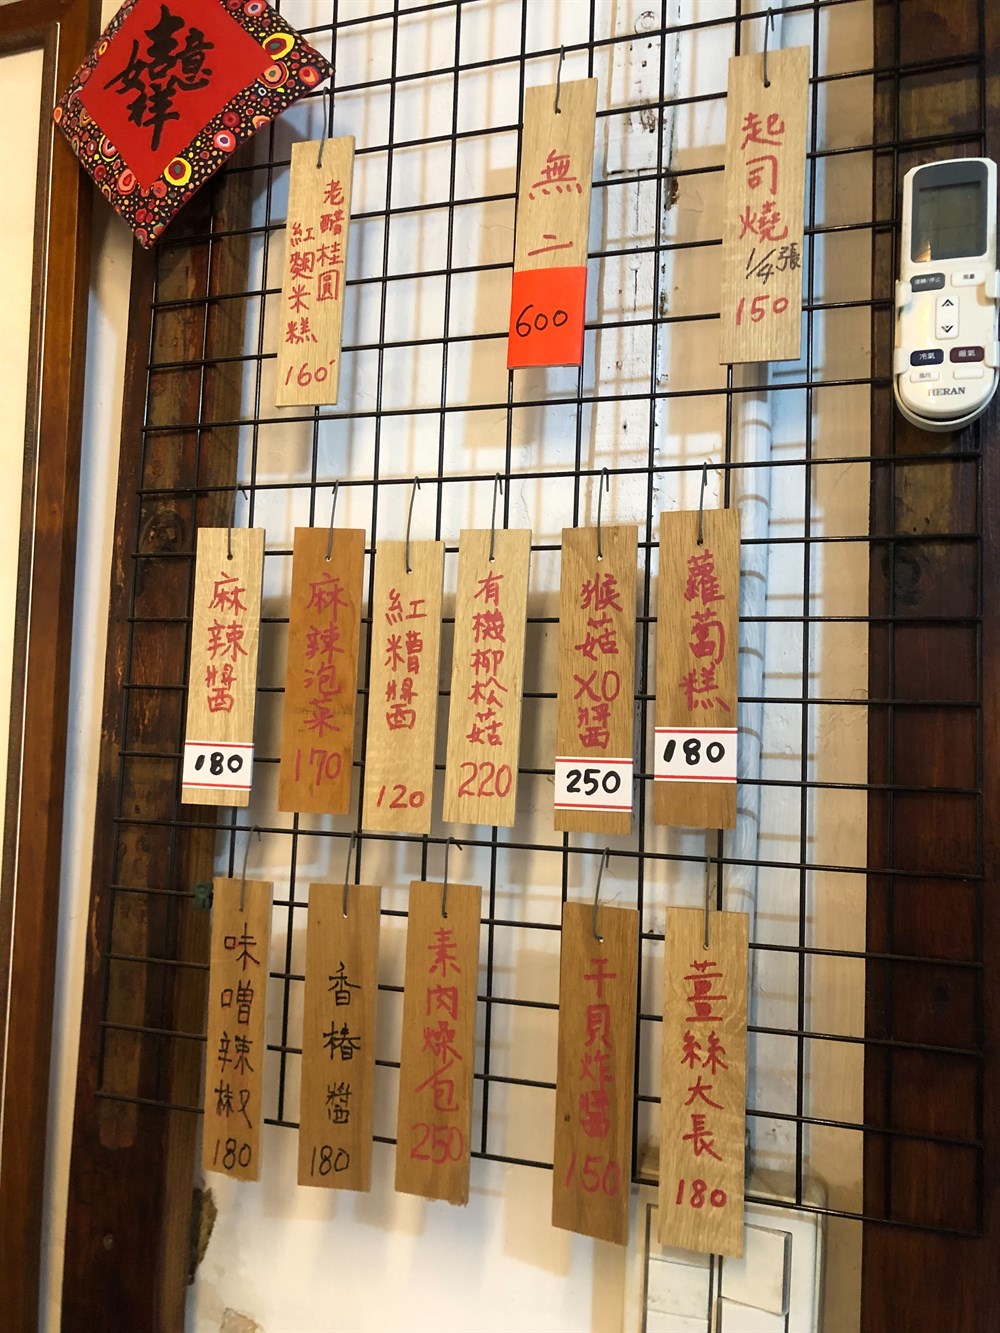 吉祥如意
老醋桂圓
紅麴米糕
160
無二
600
起司燒
1/4張
150
冷氣
暖氣
HERAN
麻辣醬
180
麻辣泡菜
170
紅糟醬
120
有機柳松菇
220
猴菇XO醬
250
蘿蔔糕
180
味噌辣椒
180
香椿醬
180
素肉燥包
250
干貝炸醬
150
薑絲大長
180